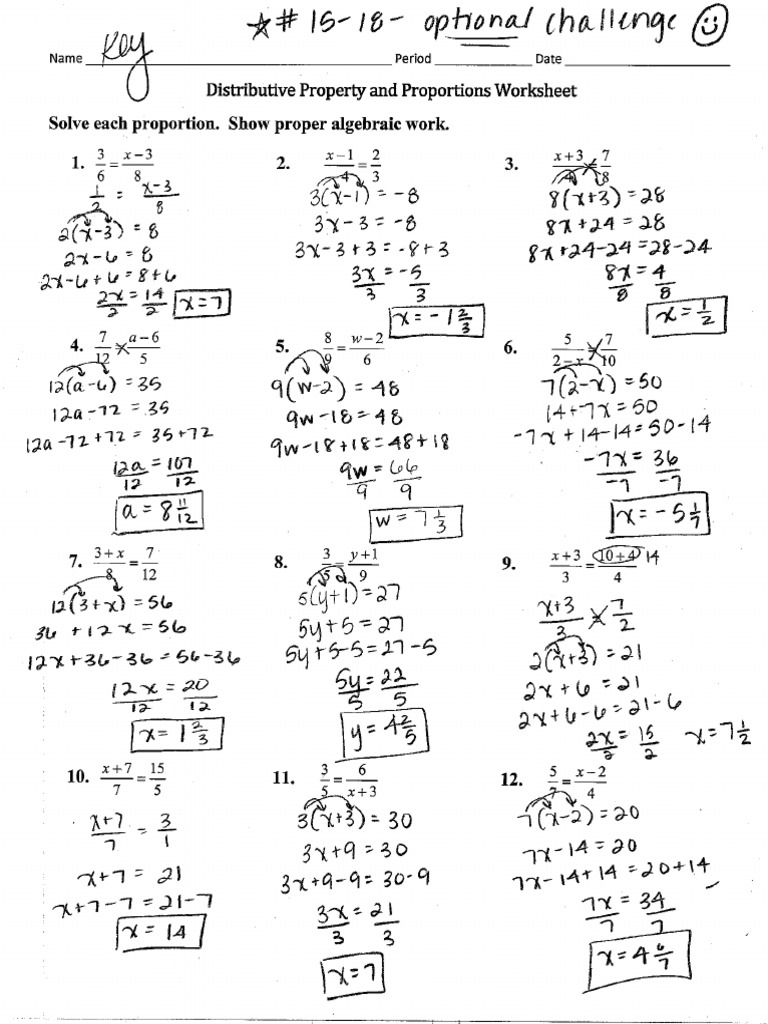 ☆# 15-18- optional challenge ☺
Name Key Period Date
Distributive Property and Proportions Worksheet
Solve each proportion. Show proper algebraic work.
1. 3/6 = x-3/8
1/2 = x-3/8
2(x-3) = 8
2x-6 = 8
2x-6+6 = 8+6
2x/2 = 14/2 x=7
2. x-1/4 = 2/3
3(x-1) = -8
3x-3 = -8
3x-3+3 = -8+3
3x/3 = -5/3
x = -1 2/3
3. x+3/4 = 7/8
8(x+3) = 28
8x+24 = 28
8x+24-24 = 28-24
8x/8 = 4/8
x = 1/2
4. 7/12 = a-6/5
12(a-6) = 35
12a-72 = 35
12a-72+72 = 35+72
12a/12 = 107/12
a = 8 11/12
5. 8/9 = w-2/6
9(w-2) = 48
9w-18 = 48
9w-18+18 = 48+18
9w/9 = 66/9
w = 7 1/3
6. 5/2-x = 7/10
7(2-x) = 50
14+7x = 50
-7x+14-14 = 50-14
-7x/-7 = 36/-7
x = -5 1/7
7. 3+x/8 = 7/12
12(3+x) = 56
36+12x = 56
12x+36-36 = 56-36
12x/12 = 20/12
x = 1 2/3
8. 3/5 = y+1/9
5(y+1) = 27
5y+5 = 27
5y+5-5 = 27-5
5y/5 = 22/5
y = 4 2/5
9. x+3/3 = 10+4/4 14
x+3/3 = 7/2
2(x+3) = 21
2x+6 = 21
2x+6-6 = 21-6
2x/2 = 15/2 x = 7 1/2
10. x+7/7 = 15/5
x+7/7 = 3/1
x+7 = 21
x+7-7 = 21-7
x = 14
11. 3/5 = 6/x+3
3(x+3) = 30
3x+9 = 30
3x+9-9 = 30-9
3x/3 = 21/3
x = 7
12. 5/7 = x-2/4
7(x-2) = 20
7x-14 = 20
7x-14+14 = 20+14
7x/7 = 34/7
x = 4 6/7